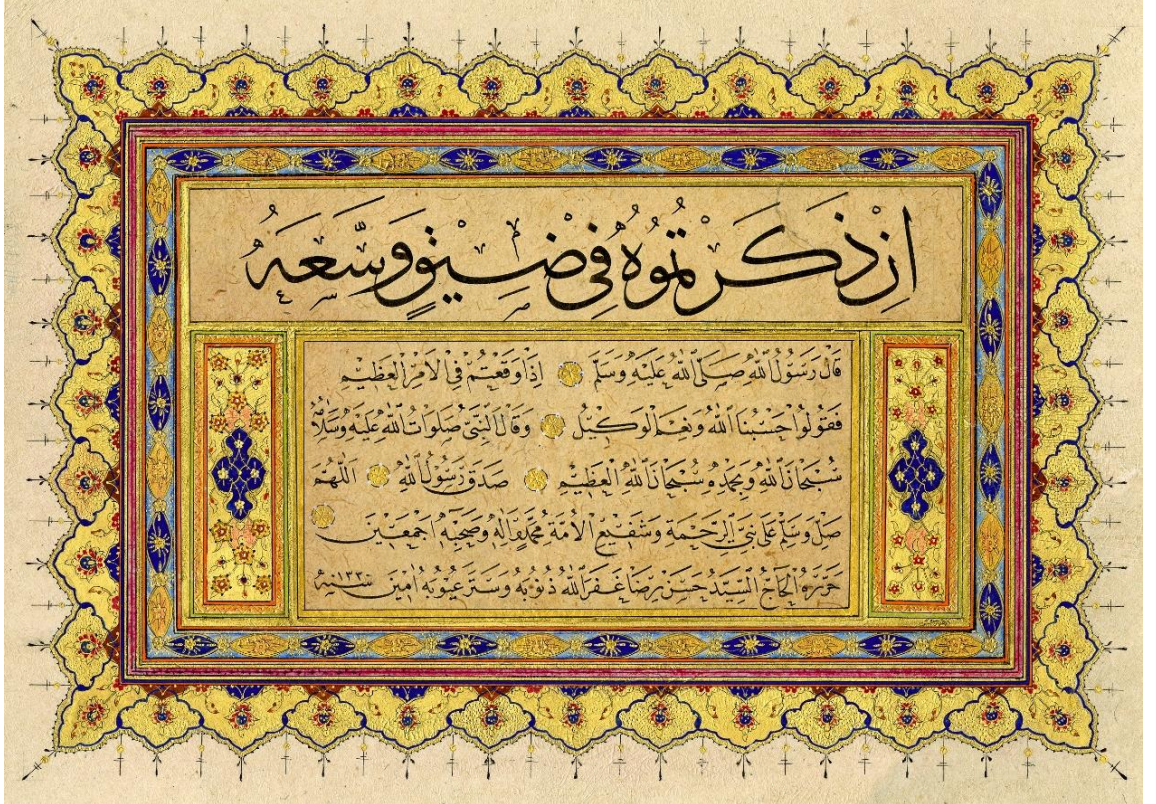 إن ذكرتموه في ضيق وسعه
قال رسول الله صلى الله عليه وسلم إذا وقعتم في الأمر العظيم
فقولوا حسبنا الله ونعم الوكيل وقال النبي صلوات الله عليه وسلامه
سبحان الله وبحمده سبحان الله العظيم صدق رسول الله اللهم
صل وسلم على نبي الرحمة وشفيع الأمة محمد وآله وصحبه أجمعين
حرره الحاج السيد حسن رضا غفر الله ذنوبه وستر عيوبه آمين سنة ١٣٣٠